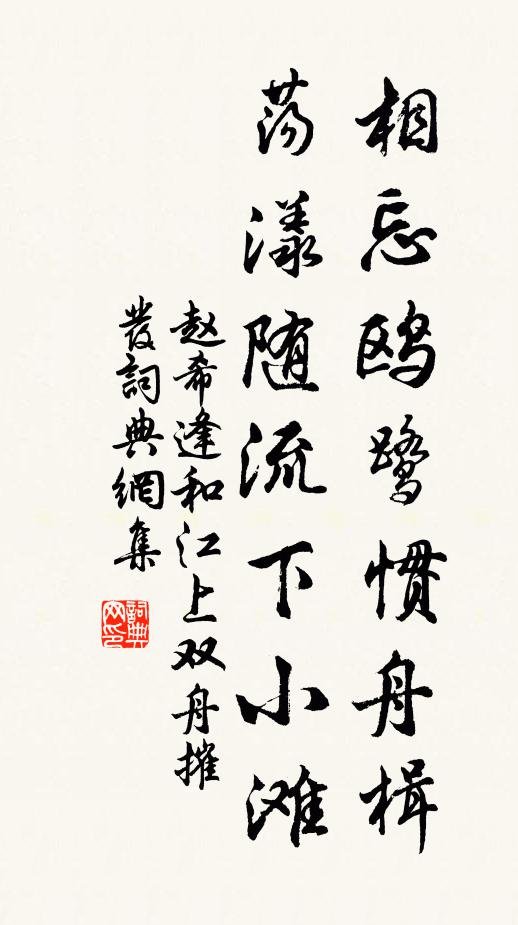 相忘鸥鹭惯舟楫
荡漾随流下小滩
赵希逢和江上双舟摧
發詞典網集
詞典
网印